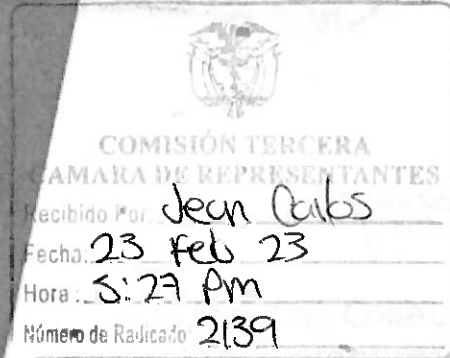 COMISIÓN TERCERA
CAMARA DE REPRESENTANTES
Recibido Por: Jean Carlos
Fecha: 23 Feb 23
Hora: 5:27 Pm
Número de Radicado 2139